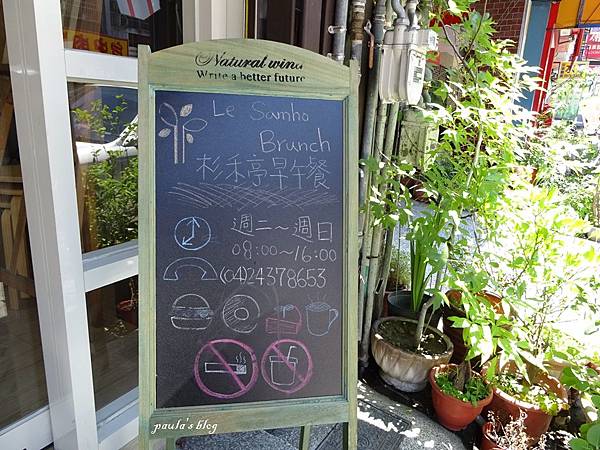 Natural wind
Write a better future
Le Samho
Brunch
杉禾亭早午餐
週二～週日
08:00～16:00
(04)24378653
paula's blog